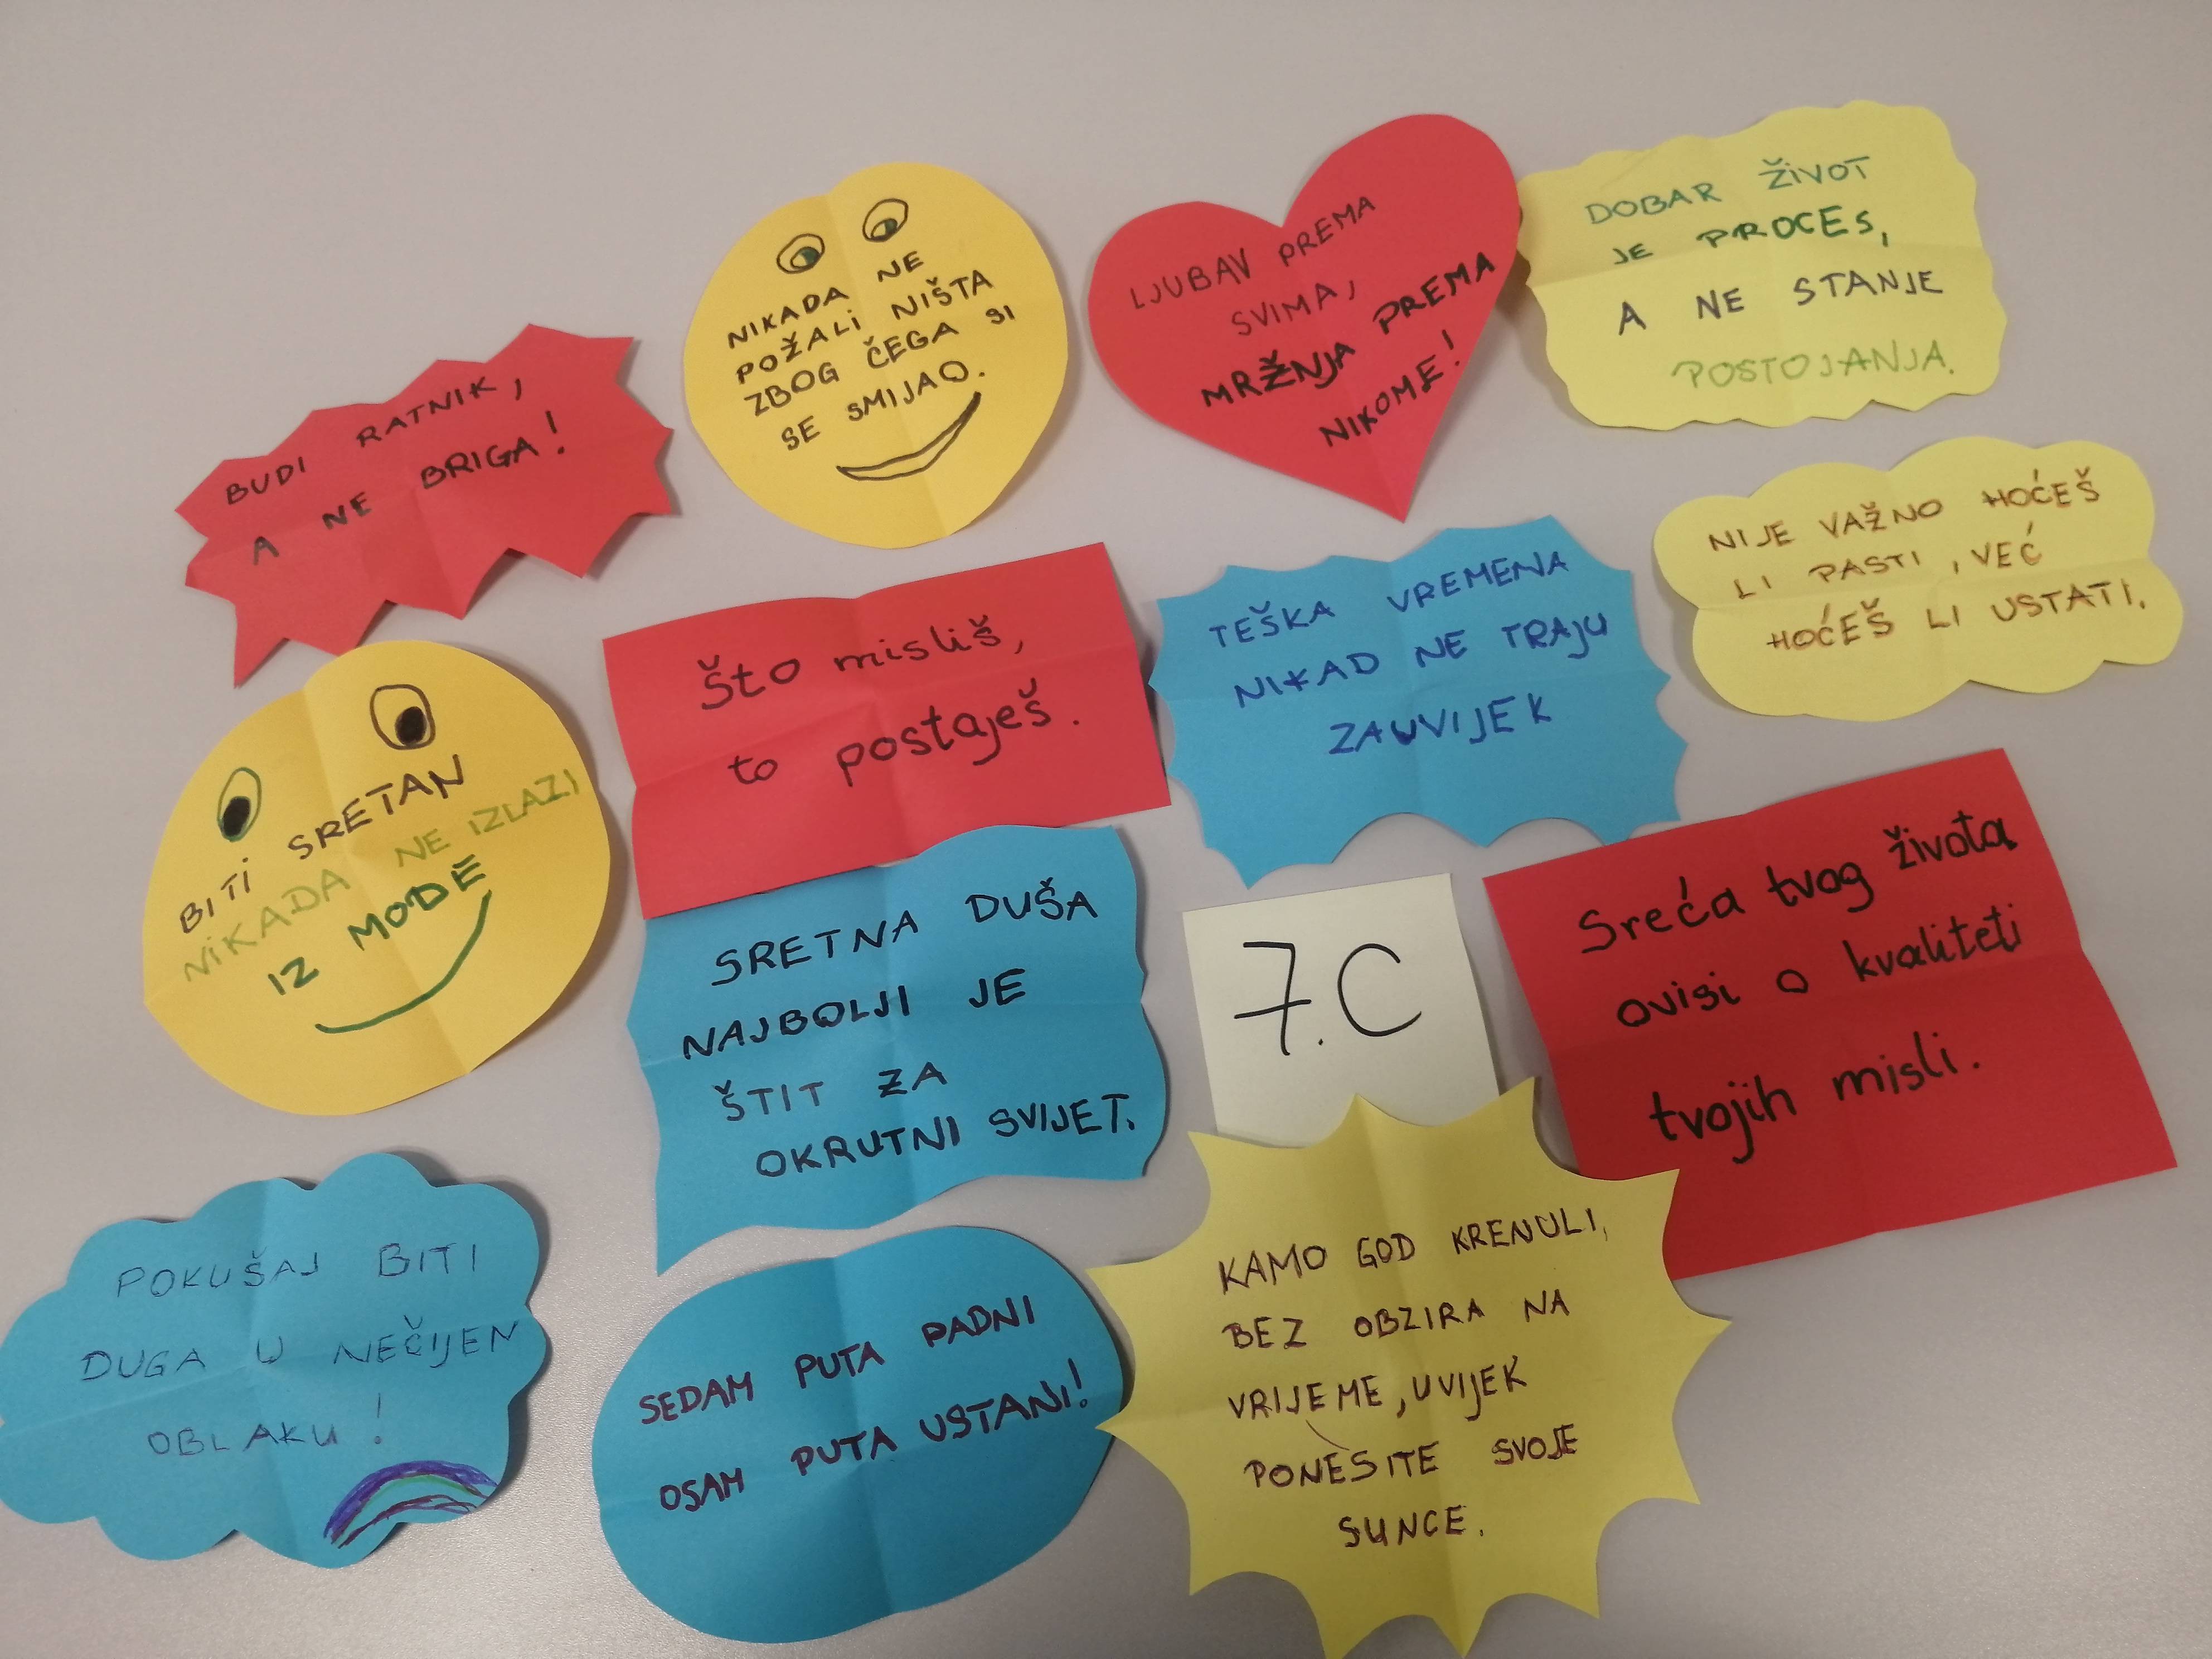 BUDI RATNIK,
A NE BRIGA!
NIKADA NE
POŽALI NIŠTA
ZBOG ČEGA SI
SE SMIJAO.
LJUBAV PREMA
SVIMA,
MRŽNJA PREMA
NIKOME!
DOBAR ŽIVOT
JE PROCES,
A NE STANJE
POSTOJANJA.
NIJE VAŽNO HOĆEŠ
LI PASTI, VEĆ
HOĆEŠ LI USTATI.
BITI SRETAN
NIKADA NE IZLAZI
IZ MODE
Što misliš,
to postaješ.
TEŠKA VREMENA
NIKAD NE TRAJU
ZAUVIJEK
SRETNA DUŠA
NAJBOLJI JE
ŠTIT ZA
OKRUTNI SVIJET.
7.C
Sreća tvog života
ovisi o kvaliteti
tvojih misli.
POKUŠAJ BITI
DUGA U NEČIJEM
OBLAKU!
SEDAM PUTA PADNI
OSAM PUTA USTANI!
KAMO GOD KRENULI,
BEZ OBZIRA NA
VRIJEME, UVIJEK
PONESITE SVOJE
SUNCE.